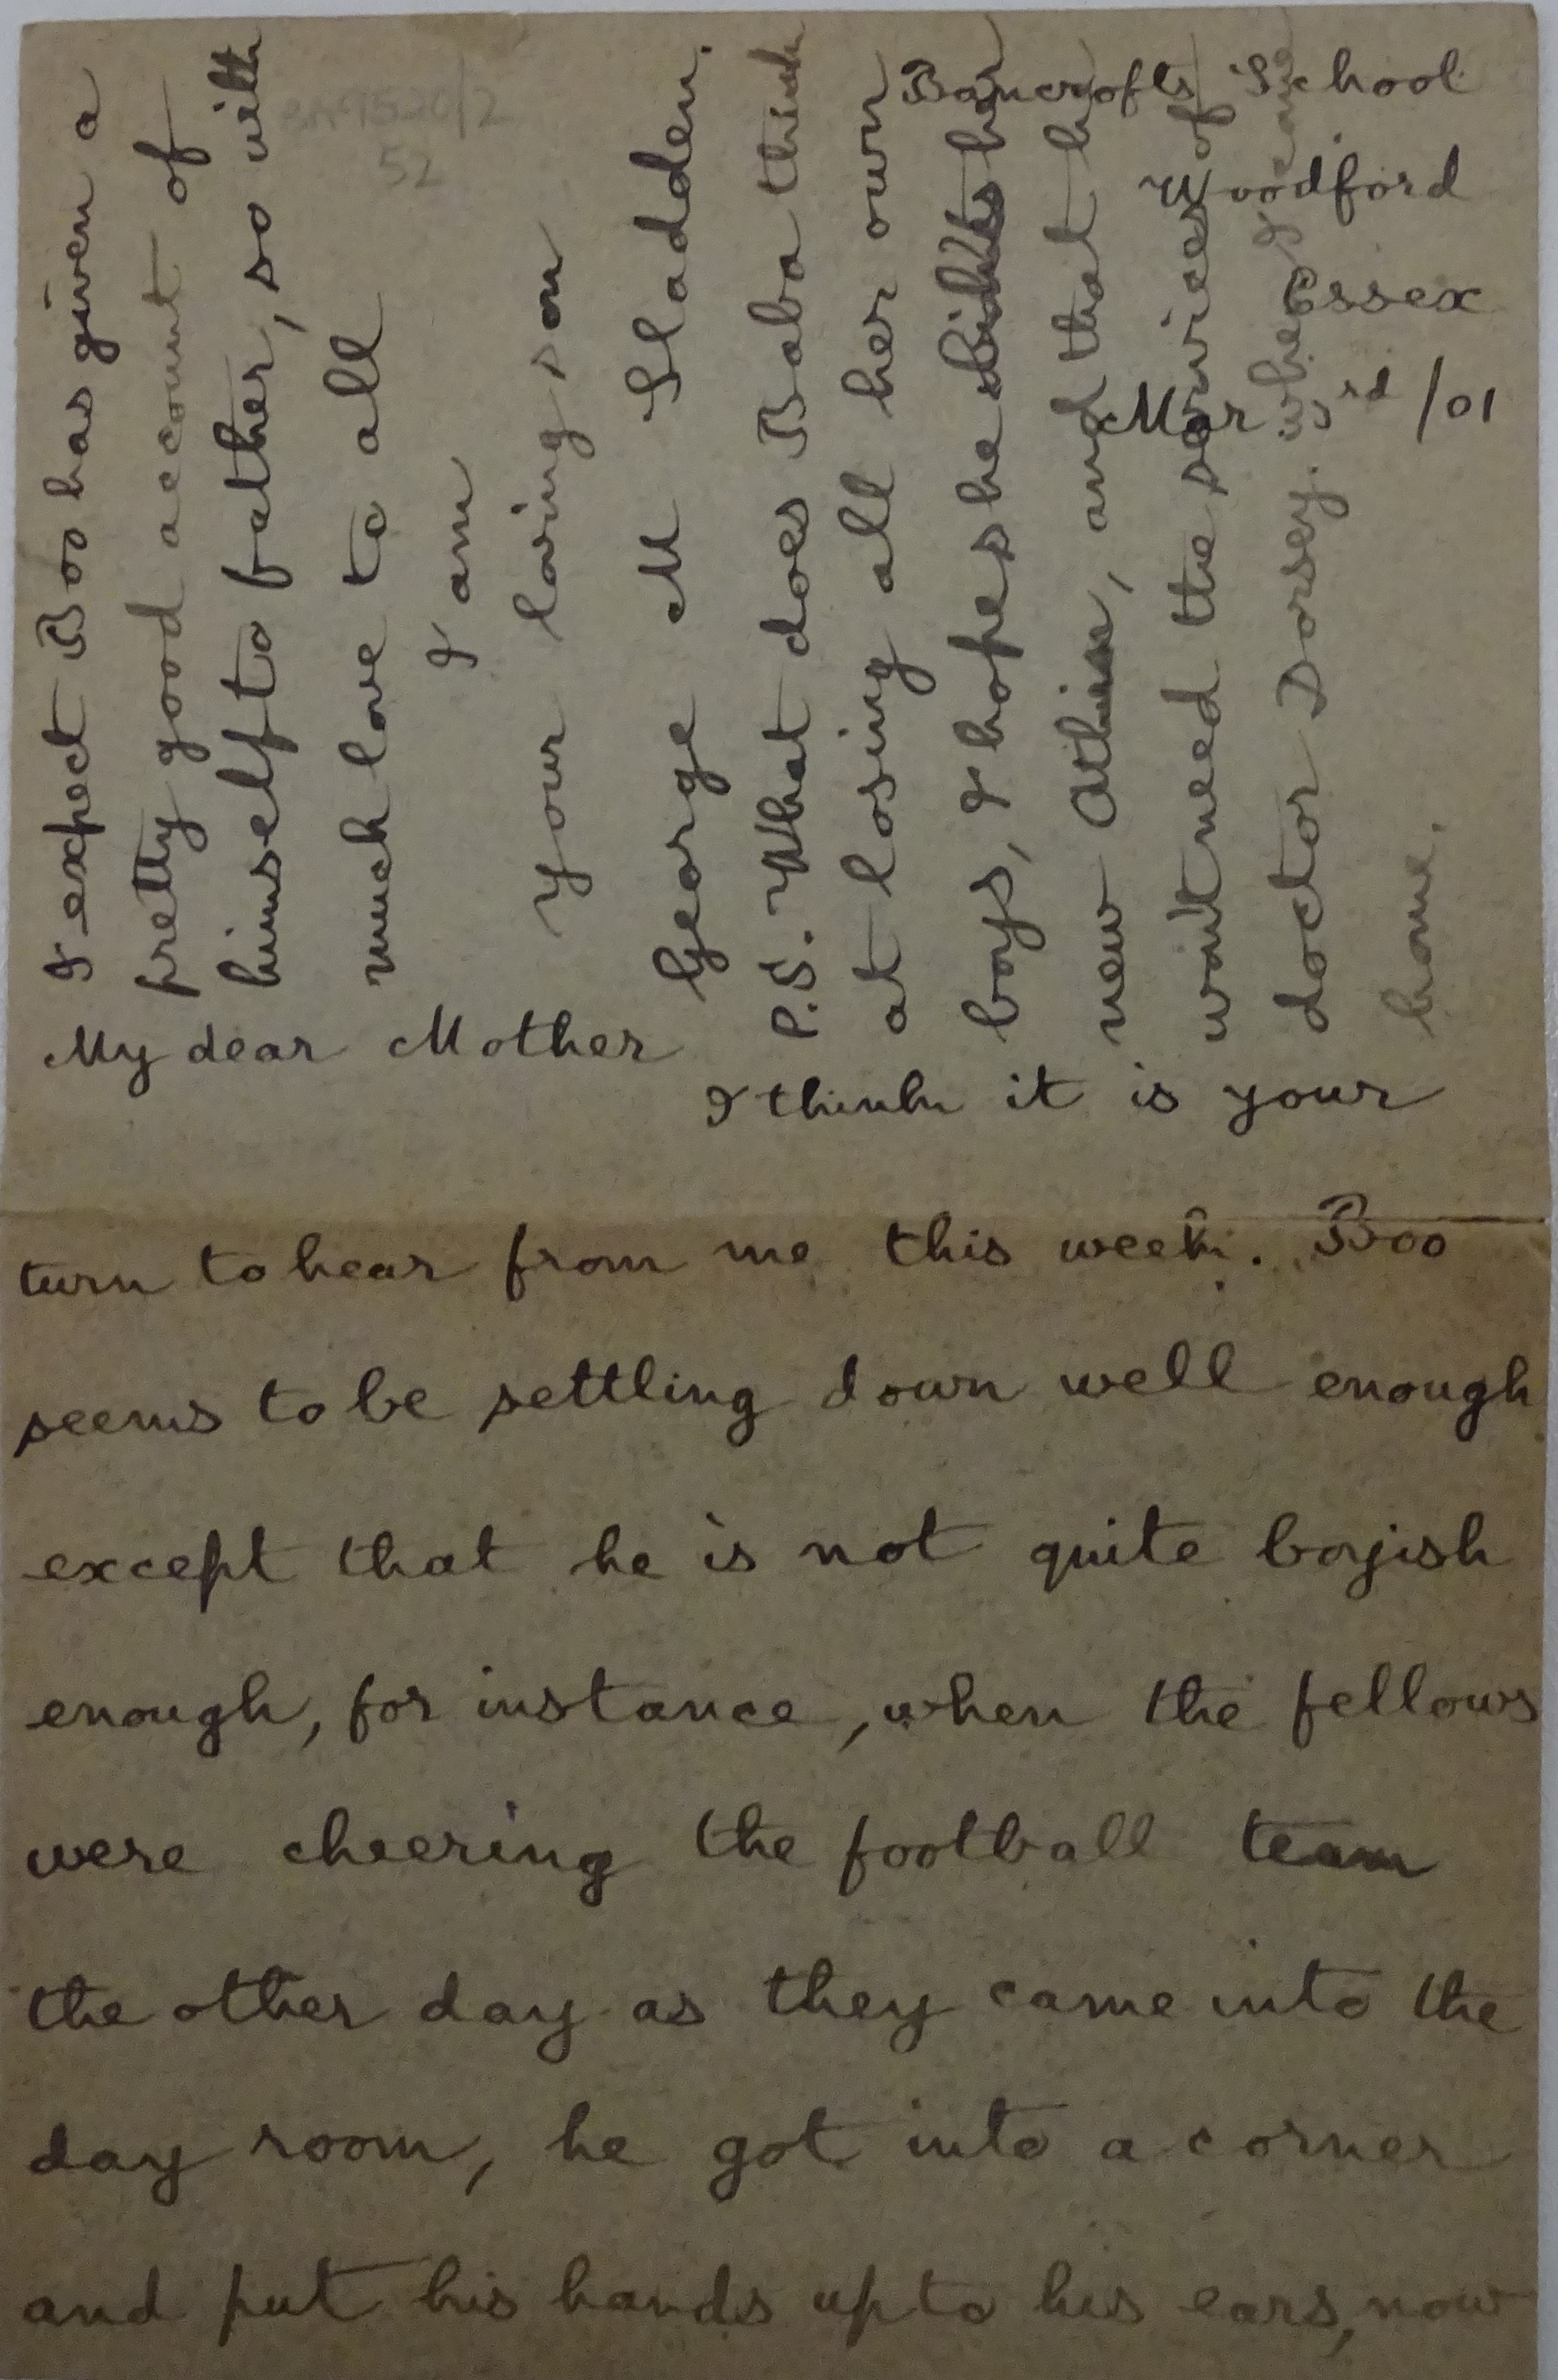 Bancrofts School
Woodford
Essex
Mar 3rd /01
My dear Mother
I think it is your
turn to hear from me this week. Boo
seems to be settling down well enough
except that he is not quite boyish
enough, for instance, when the fellows
were cheering the football team
the other day as they came into the
day room, he got into a corner
and put his hands up to his ears, now
I expect Boo has given a
pretty good account of
himself to father, so with
much love to all
I am
your loving son
George M Sladden.
P.S. What does Baba think
at losing all her own
boys, I hope she likes her
new, and that he
won't need the services of
doctor Dorsey. when I come
home.
52